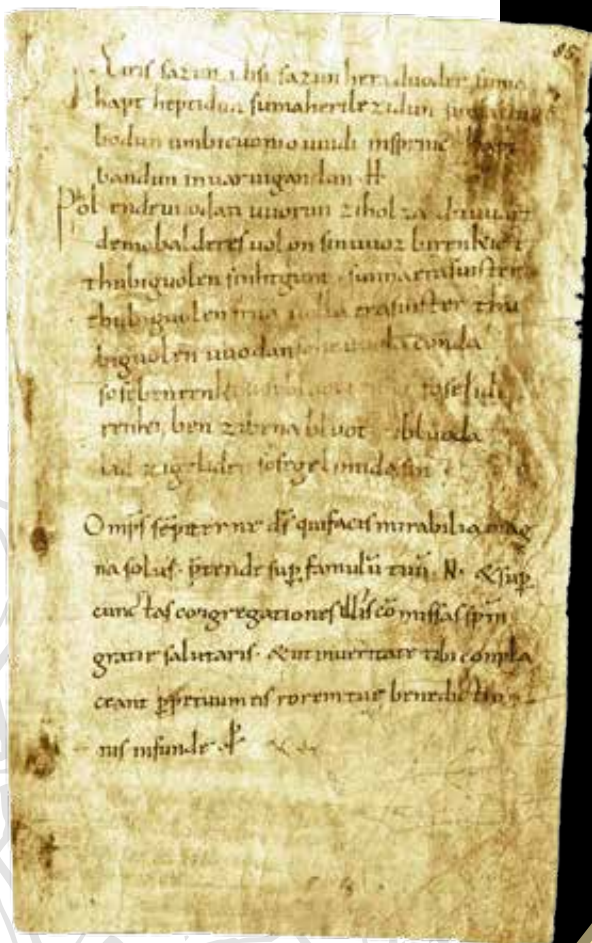 85
Eiris sazun idisi sazun hera duoder suma
hapt heptidun sumaherilezidun sumaclu
bodun umbicuonio uuidi insprinc hapt
bandun inuar uigandun · H ·
Phol endeuuodan uuorun ziholza du uuart
demobalderes uolon sinuuoz birenkict
thubiguolen sinhtgunt · sunnaerasuister
thubiguolen friia uolla erasuister thu
biguolen uuodan sohe uuolaconda
sosebenrenki soselidi
renki ben zibena bluot zibluoda
lid zigeliden sosegelimida sin
Omp̄s sēpiterne d̄s quifacis mirabilia mag
na solus · p̄tende sup̄ famulū tuū · N · & sup̄
cunctas congregationes illis cōmissas sp̄m
gratie salutaris · & ut inueritate tibi compla
ceant p̄petuum eis rorem tue benedictio
nis infunde · p̄